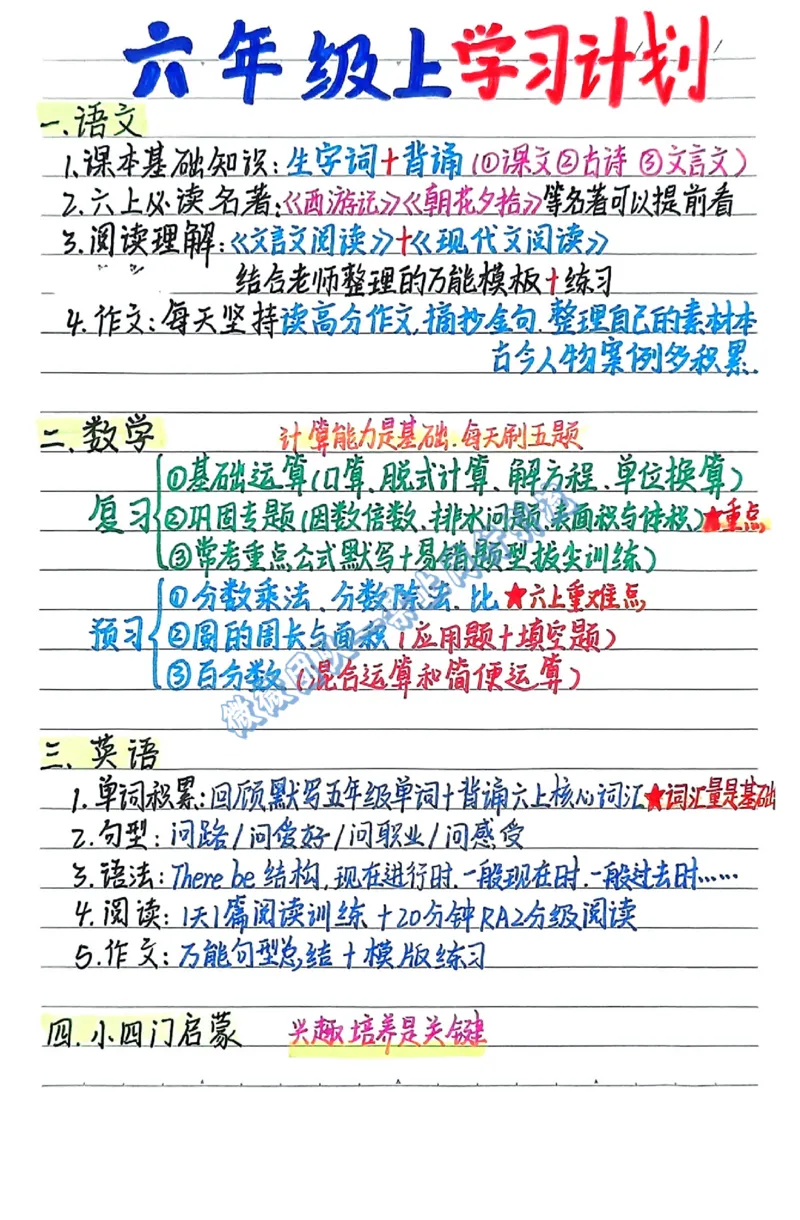 六年级上学习计划
一.语文
1.课本基础知识:生字词+背诵(①课文②古诗 ③文言文)
2.六上必读名著:《西游记》《朝花夕拾》等名著可以提前看
3.阅读理解:《文言文阅读》+《现代文阅读》
结合老师整理的万能模板+练习
4.作文:每天坚持读高分作文,摘抄金句.整理自己的素材本
古今人物案例多积累.
二.数学 计算能力是基础.每天刷五题
复习
①基础运算(口算、脱式计算、解方程、单位换算)
②巩固专题(因数倍数、排水问题、表面积与体积)★重点
③常考重点公式默写+易错题型拔尖训练)
预习
①分数乘法、分数除法、比★六上重难点
②圆的周长与面积(应用题+填空题)
③百分数(混合运算和简便运算)
三.英语
1.单词积累:回顾默写五年级单词+背诵六上核心词汇★词汇量是基础
2.句型:问路/问爱好/问职业/问感受
3.语法:There be 结构,现在进行时.一般现在时.一般过去时……
4.阅读:1天1篇阅读训练+20分钟RAZ分级阅读
5.作文:万能句型总结+模版练习
四.小四门启蒙 兴趣培养是关键